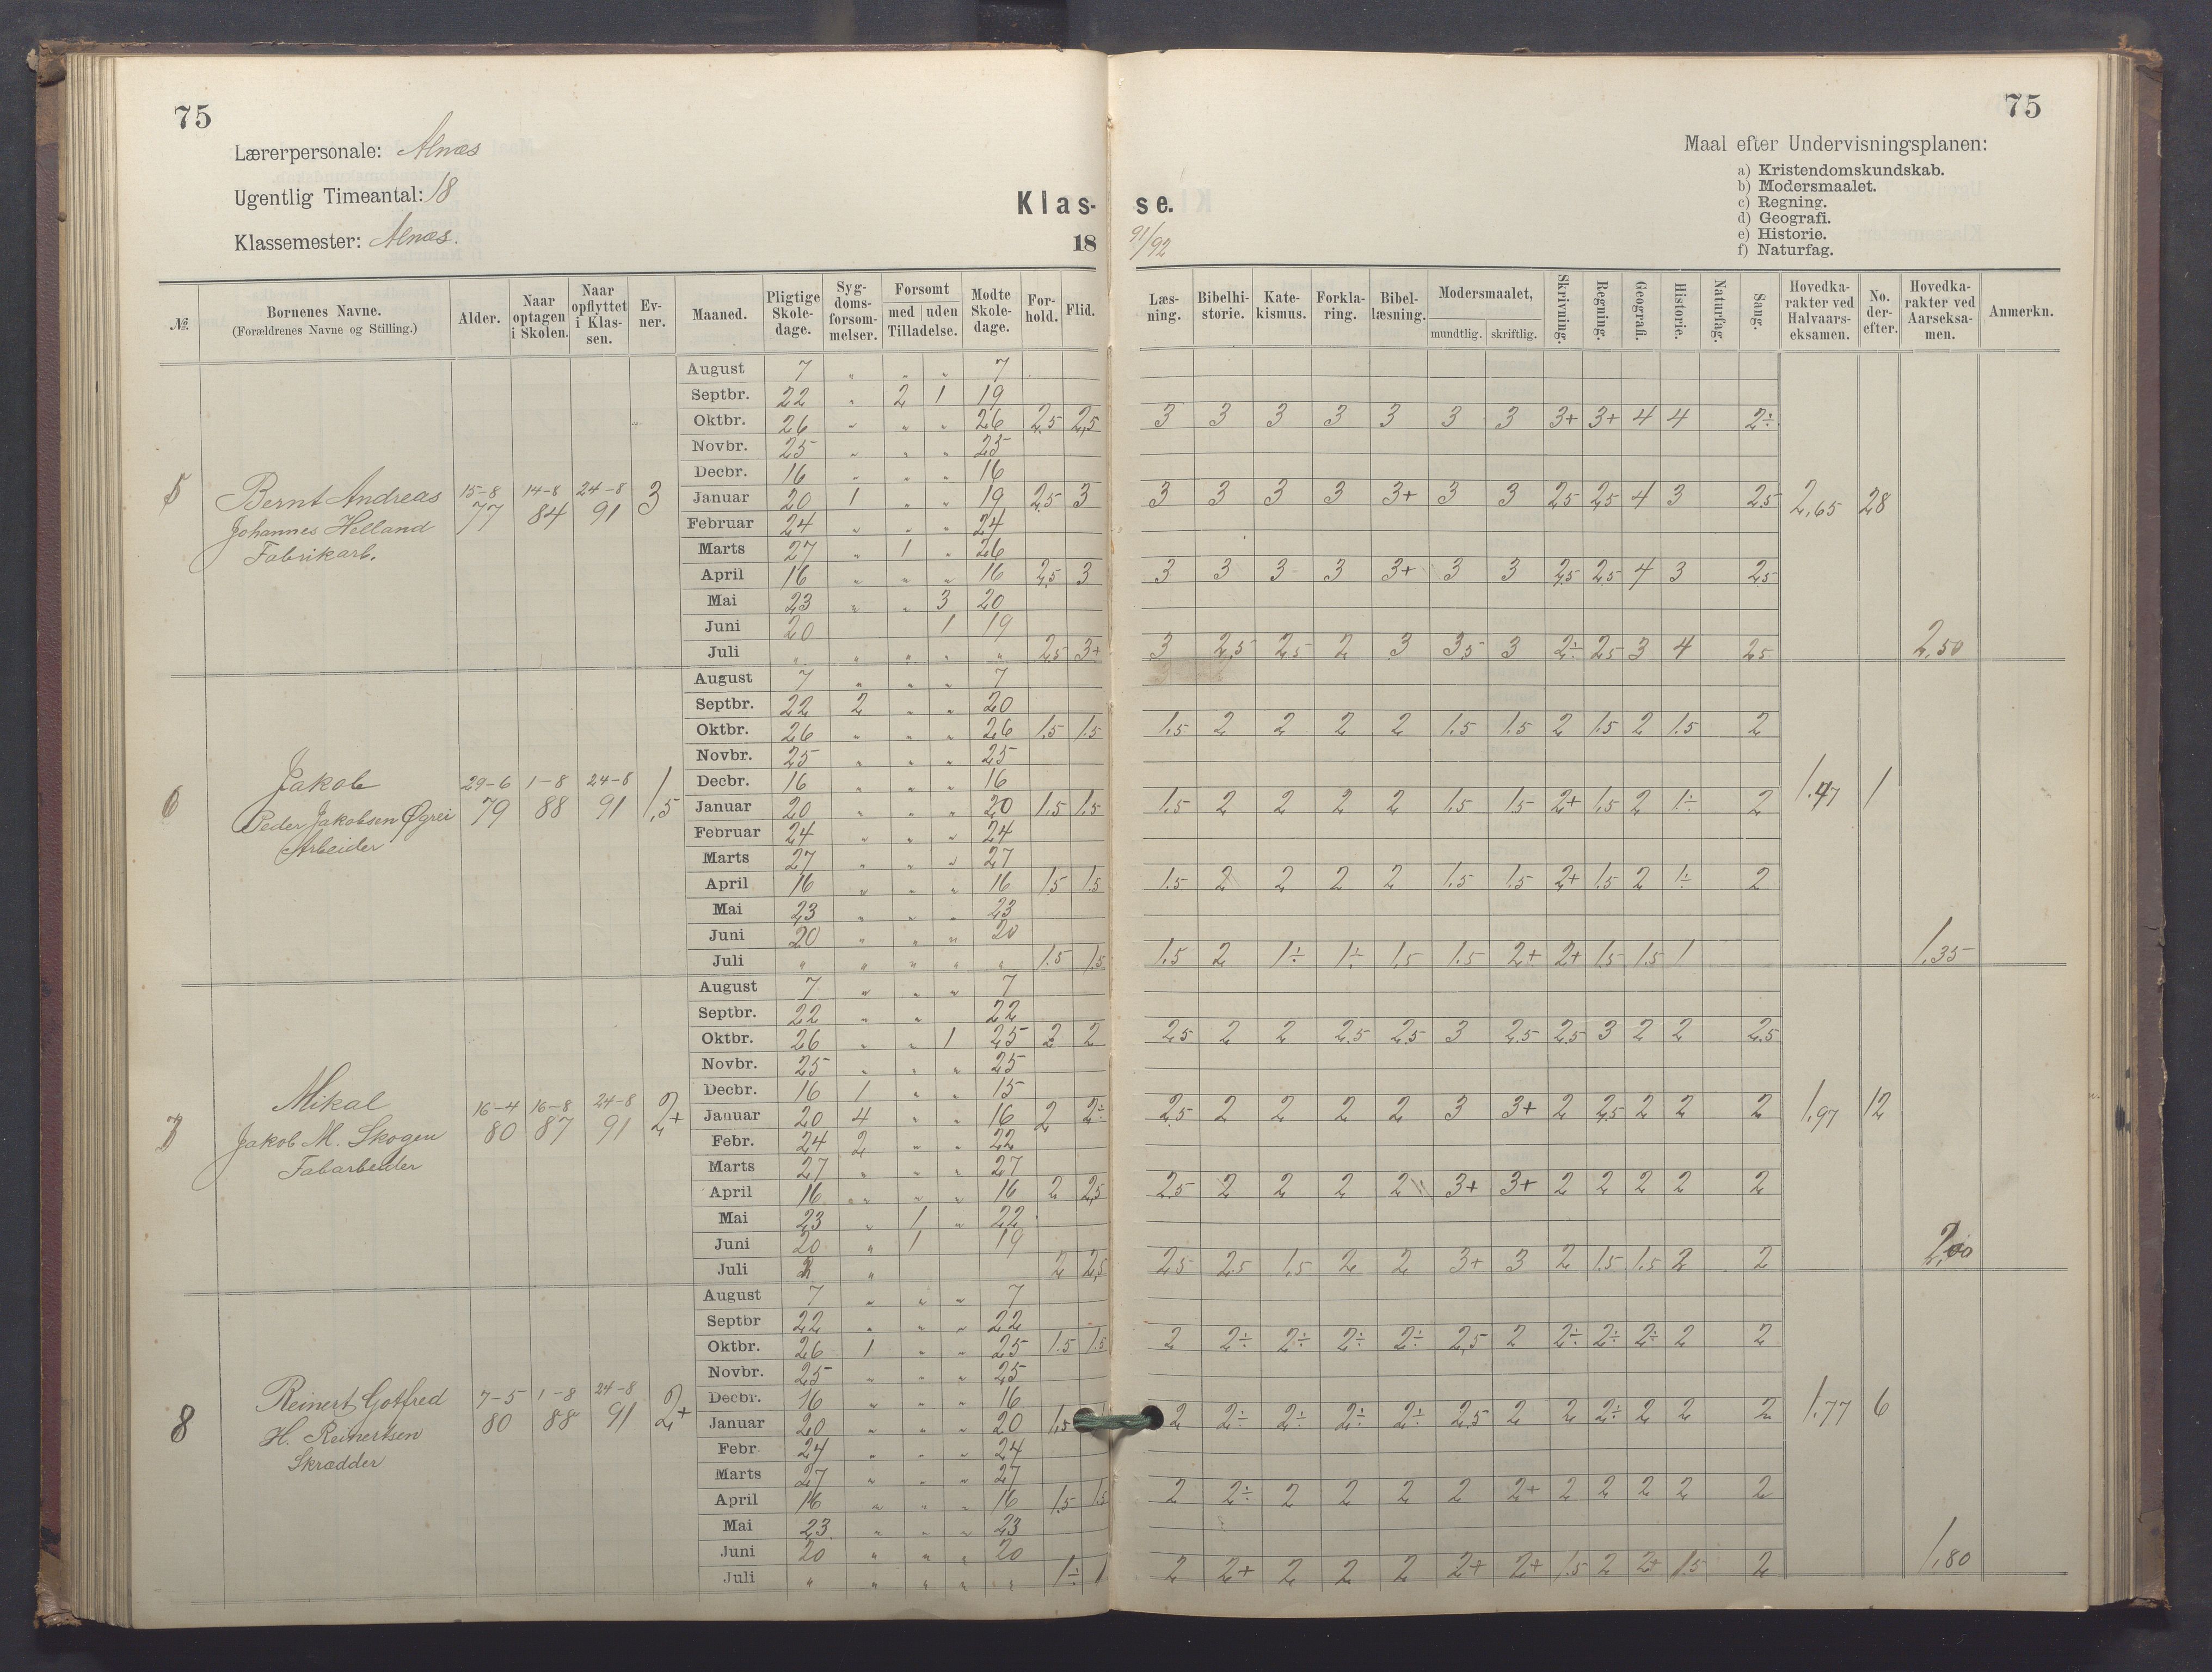 75
75
Lærerpersonale: Alnæs
Ugentlig Timeantal: 18
Klassemester: Alnæs.
Klas- se.
18 91/92
Maal efter Undervisningsplanen:
a) Kristendomskundskab.
b) Modersmaalet.
c) Regning.
d) Geografi.
e) Historie.
f) Naturfag.
№ Børnenes Navne. (Forældrenes Navne og Stilling.) Alder. Naar optagen i Skolen. Naar opflyttet i Klassen. Evner. Maaned. Pligtige Skoledage. Sygdomsforsømmelser. Forsømt med uden Tilladelse. Mødte Skoledage. Forhold. Flid. Læsning. Bibelhistorie. Katekismus. Forklaring. Bibellæsning. Modersmaalet, mundtlig. skriftlig. Skrivning. Regning. Geografi. Historie. Naturfag. Sang. Hovedkarakter ved Halvaarseksamen. No. derefter. Hovedkarakter ved Aarseksamen. Anmerkn.
5 Bernt Andreas 15-8 77 14-8 84 24-8 91 3
Johannes Helland
Fabrikarb.
August 7 " " " 7
Septbr. 22 " 2 1 19
Oktbr. 26 " " " 26 2,5 2,5 3 3 3 3 3 3 3 3+ 3+ 4 4 2÷
Novbr. 25 " " " 25
Decbr. 16 " " " 16
Januar 20 1 " " 19 2,5 3 3 3 3 3 3+ 3 3 2,5 2,5 4 3 2,5 2,65 28
Februar 24 " " " 24
Marts 27 " 1 " 26
April 16 " " " 16 2,5 3 3 3 3 3 3+ 3 3 2,5 2,5 4 3 2,5
Mai 23 " " 3 20
Juni 20 1 19
Juli " " " " " 2,5 3+ 3 2,5 2,5 2 3 3,5 3 2÷ 2,5 3 4 2,5 2,50
6 Jakob 29-6 79 1-8 88 24-8 91 1,5
Peder Jakobsen Øgrei
Arbeider
August 7 " " " 7
Septbr. 22 2 " " 20
Oktbr. 26 " " " 26 1.5 1.5 1.5 2 2 2 2 1.5 1.5 2 1.5 2 1.5 2
Novbr. 25 " " " 25
Decbr. 16 " " " 16
Januar 20 " " " 20 1.5 1.5 1.5 2 2 2 2 1.5 1.5 2+ 1.5 2 1÷ 2 1.47 1
Februar 24 " " " 24
Marts 27 " " " 27
April 16 " " " 16 1.5 1.5 1.5 2 2 2 2 1.5 1.5 2+ 1.5 2 1÷ 2
Mai 23 " " " 23
Juni 20 " " " 20
Juli " " " " " 1.5 1.5 1.5 2 1÷ 1÷ 1.5 1.5 2+ 2+ 1.5 1.5 1 1,35
7 Mikal 16-4 80 16-8 87 24-8 91 2+
Jakob M. Skogen
Fabarbeider
August 7 " " " 7
Septbr. 22 " " 22
Oktbr. 26 " " 1 25 2 2 2.5 2 2 2.5 2.5 3 2.5 2.5 3 2 2 2.5
Novbr. 25 " " " 25
Decbr. 16 1 " " 15
Januar 20 4 " " 16 2 2÷ 2.5 2 2 2 2 3 3+ 2 2,5 2 2 2 1,97 12
Febr. 24 2 " " 22
Marts 27 " " " 27
April 16 " " " " 16 2 2,5 2.5 2 2 2 2 3+ 3+ 2 2 2 2 2
Mai 23 " 1 " 22
Juni 20 " 1 19
Juli " 2 2,5 2.5 2.5 1,5 2 2 3+ 3 2 1.5 1.5 2 2 2,00
8 Reinert Gotfred 7-5 80 1-8 88 24-8 91 2+
H. Reinertsen
Skrædder
August 7 " " " 7
Septbr 22 " " " 22
Oktbr. 26 1 " " 25 1.5 1.5 2 2÷ 2÷ 2÷ 2÷ 2,5 2 2÷ 2÷ 2÷ 2 2
Novbr. 25 " " " 25
Decbr. 16 " " " 16
Januar 20 " " " 20 1,5 2 2÷ 2÷ 2÷ 2÷ 2,5 2 2 2÷ 2 2 2 1,77 6
Febr 24 " " " 24
Marts 27 " " " 27
April 16 " " " 16 1.5 1.5 2 2÷ 2 2 2 2 2+ 2 2 2 2 2
Mai 23 " " " 23
Juni 20 " " " 20
Juli " " " " " 1÷ 1 2 2+ 2 2 2 2+ 2+ 1.5 2 2+ 1.5 2 1,80